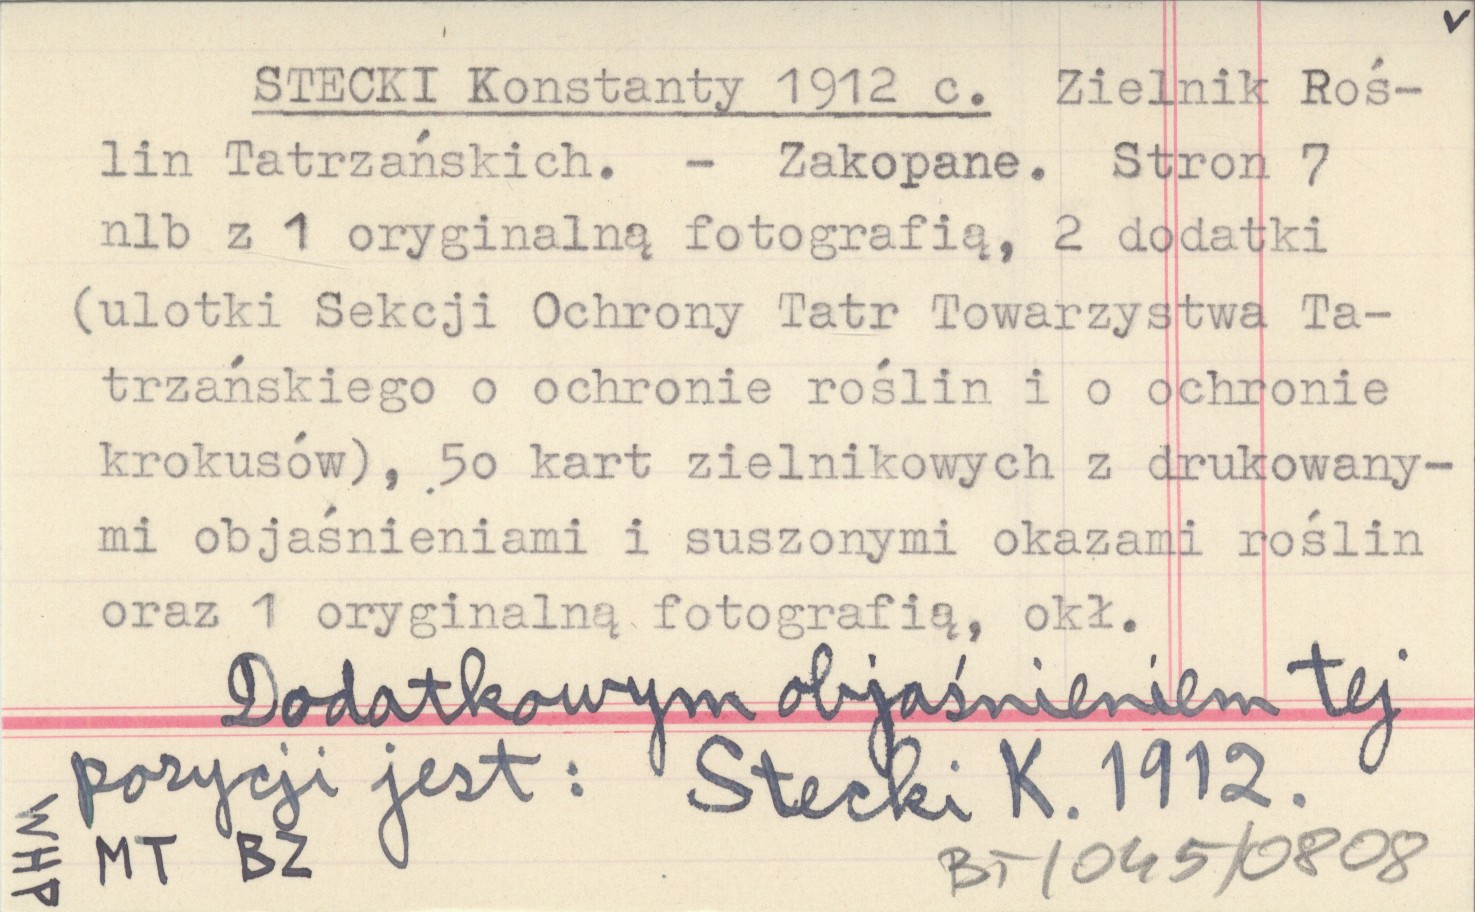 v
STECKI Konstanty 1912 c. Zielnik Roś-
lin Tatrzańskich. - Zakopane. Stron 7
nlb z 1 oryginalną fotografią, 2 dodatki
(ulotki Sekcji Ochrony Tatr Towarzystwa Ta-
trzańskiego o ochronie roślin i o ochronie
krokusów), 5o kart zielnikowych z drukowany-
mi objaśnieniami i suszonymi okazami roślin
oraz 1 oryginalną fotografią, okł.
Dodatkowym objaśnieniem tej
pozycji jest: Stecki K. 1912.
WHP
MT BZ
BT/045/0808